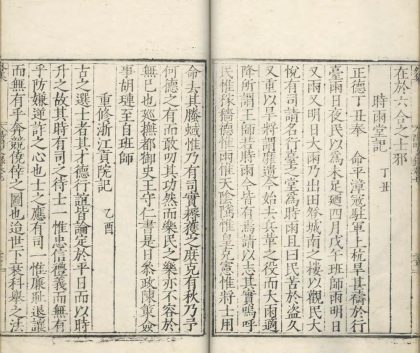 在於六合之士邪
時雨堂記 丁丑
正德丁丑奉 命平漳寇駐軍上杭旱甚禱於行
臺雨日夜民以為未足迺四月戊午班師雨明日
又雨又明日大雨乃出田登城南之樓以觀民大
悅有司請名行臺之堂為時雨且曰民苦於盜久
又重以旱將謂靡遺今始去兵革之役而大雨適
降所謂王師若時雨今皆有焉請以志其實嗚呼
民惟稼穡德惟雨惟天陰隲惟皇克憲惟將士用
命去其螣蜮惟乃有司實耨獲之庶克有秋乃予
何德之有而敢叨其功然而樂民之樂亦不容於
無巳也巡撫都御史王守仁書是日參政陳策僉
事胡璉至自班師
重修浙江貢院記 乙酉
古之選士者其才德行誼皆論定於平日而以時
升之故其時有司之待士一惟忠信禮義而無有
乎防嫌逆詐之心也士之應有司一惟廉恥退讓
而無有乎奔競僥倖之圖也迨世下衰科舉之法